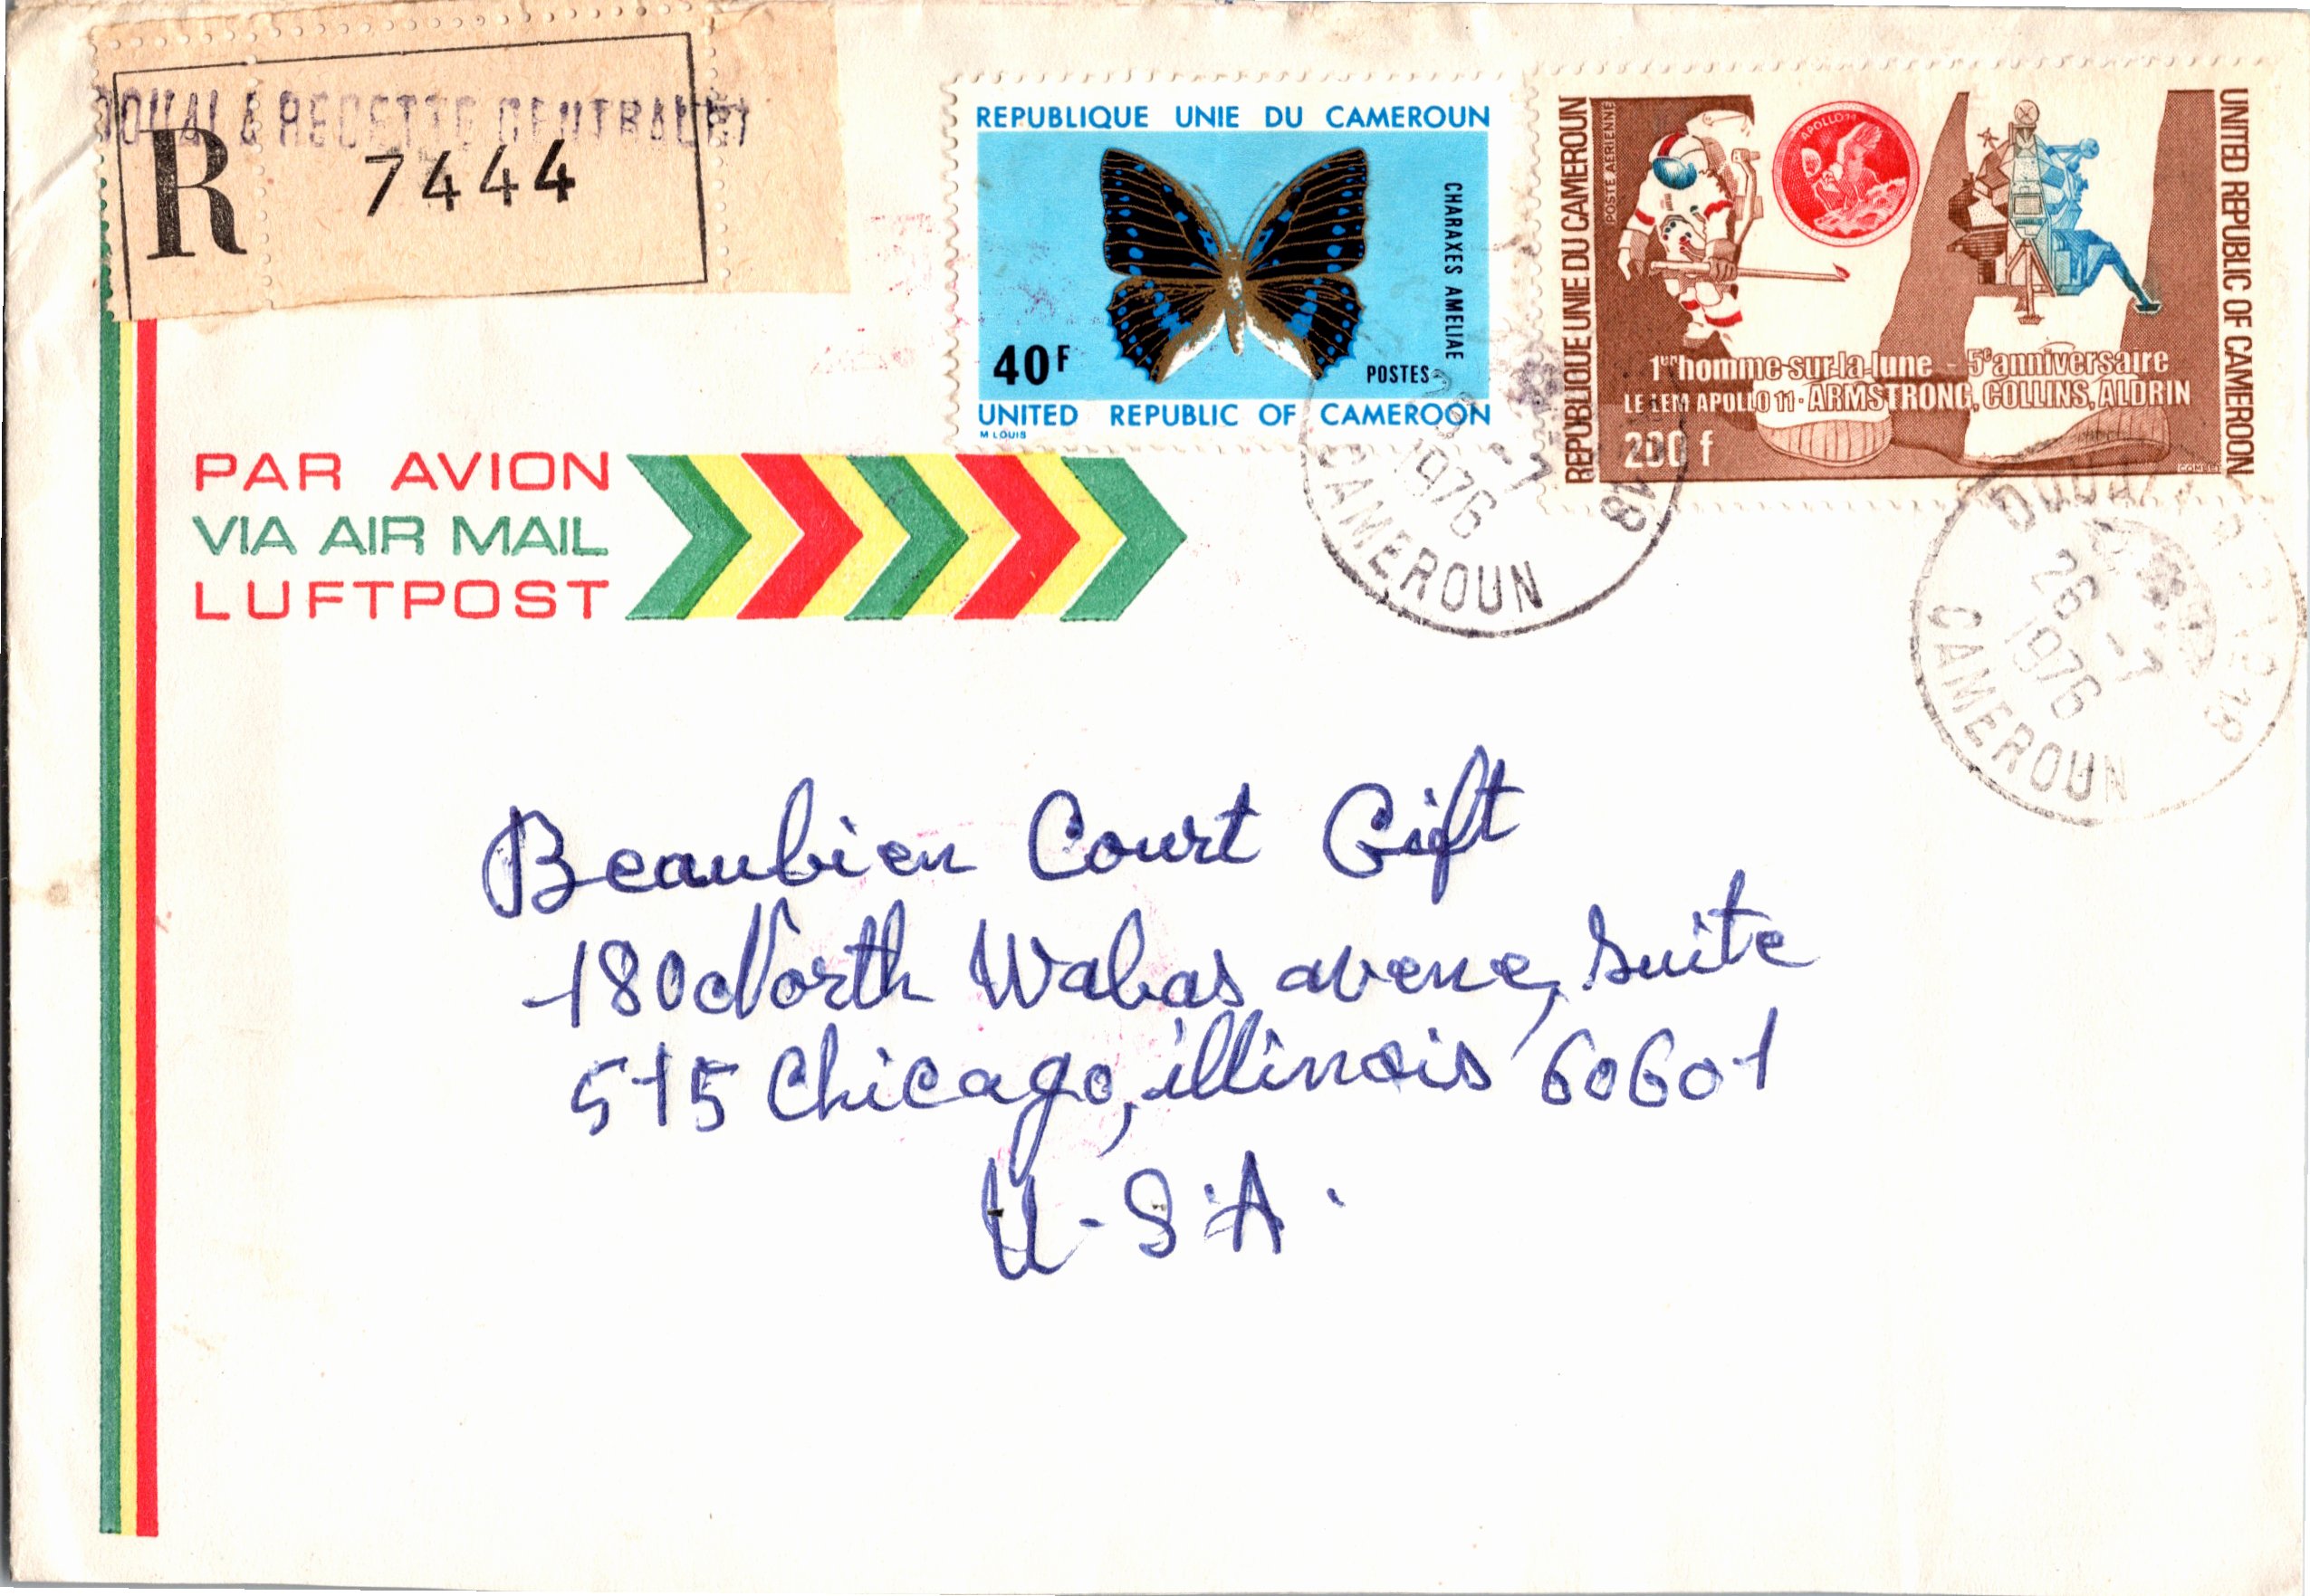 DOUALA RECETTE CENTRALE
R 7444
REPUBLIQUE UNIE DU CAMEROUN
CHARAXES AMELIAE
40F
POSTES
UNITED REPUBLIC OF CAMEROON
M LOUIS
REPUBLIQUE UNIE DU CAMEROUN
POSTE AERIENNE
APOLLO 11
UNITED REPUBLIC OF CAMEROON
1er homme-sur-la-lune - 5e anniversaire
LE LEM APOLLO 11 · ARMSTRONG, COLLINS, ALDRIN
200 f
COMBET
PAR AVION
VIA AIR MAIL
LUFTPOST
-7
1976
18
CAMEROUN
DOUALA
26 -7
1976
18
CAMEROUN
Beaubien Court Gift
180 North Wabas avene, Suite
515 Chicago, illinois 60601
U-S.A.